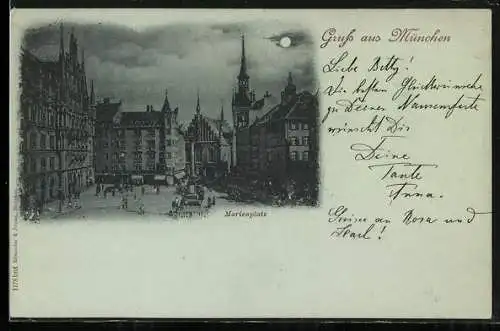 Gruß aus München
Liebe Betty!
Die besten Glückwünsche
zu Deinem Namensfeste
wünscht Dir
Deine
Tante
Anna.
Grüsse an Rosa und
Karl!
Marienplatz